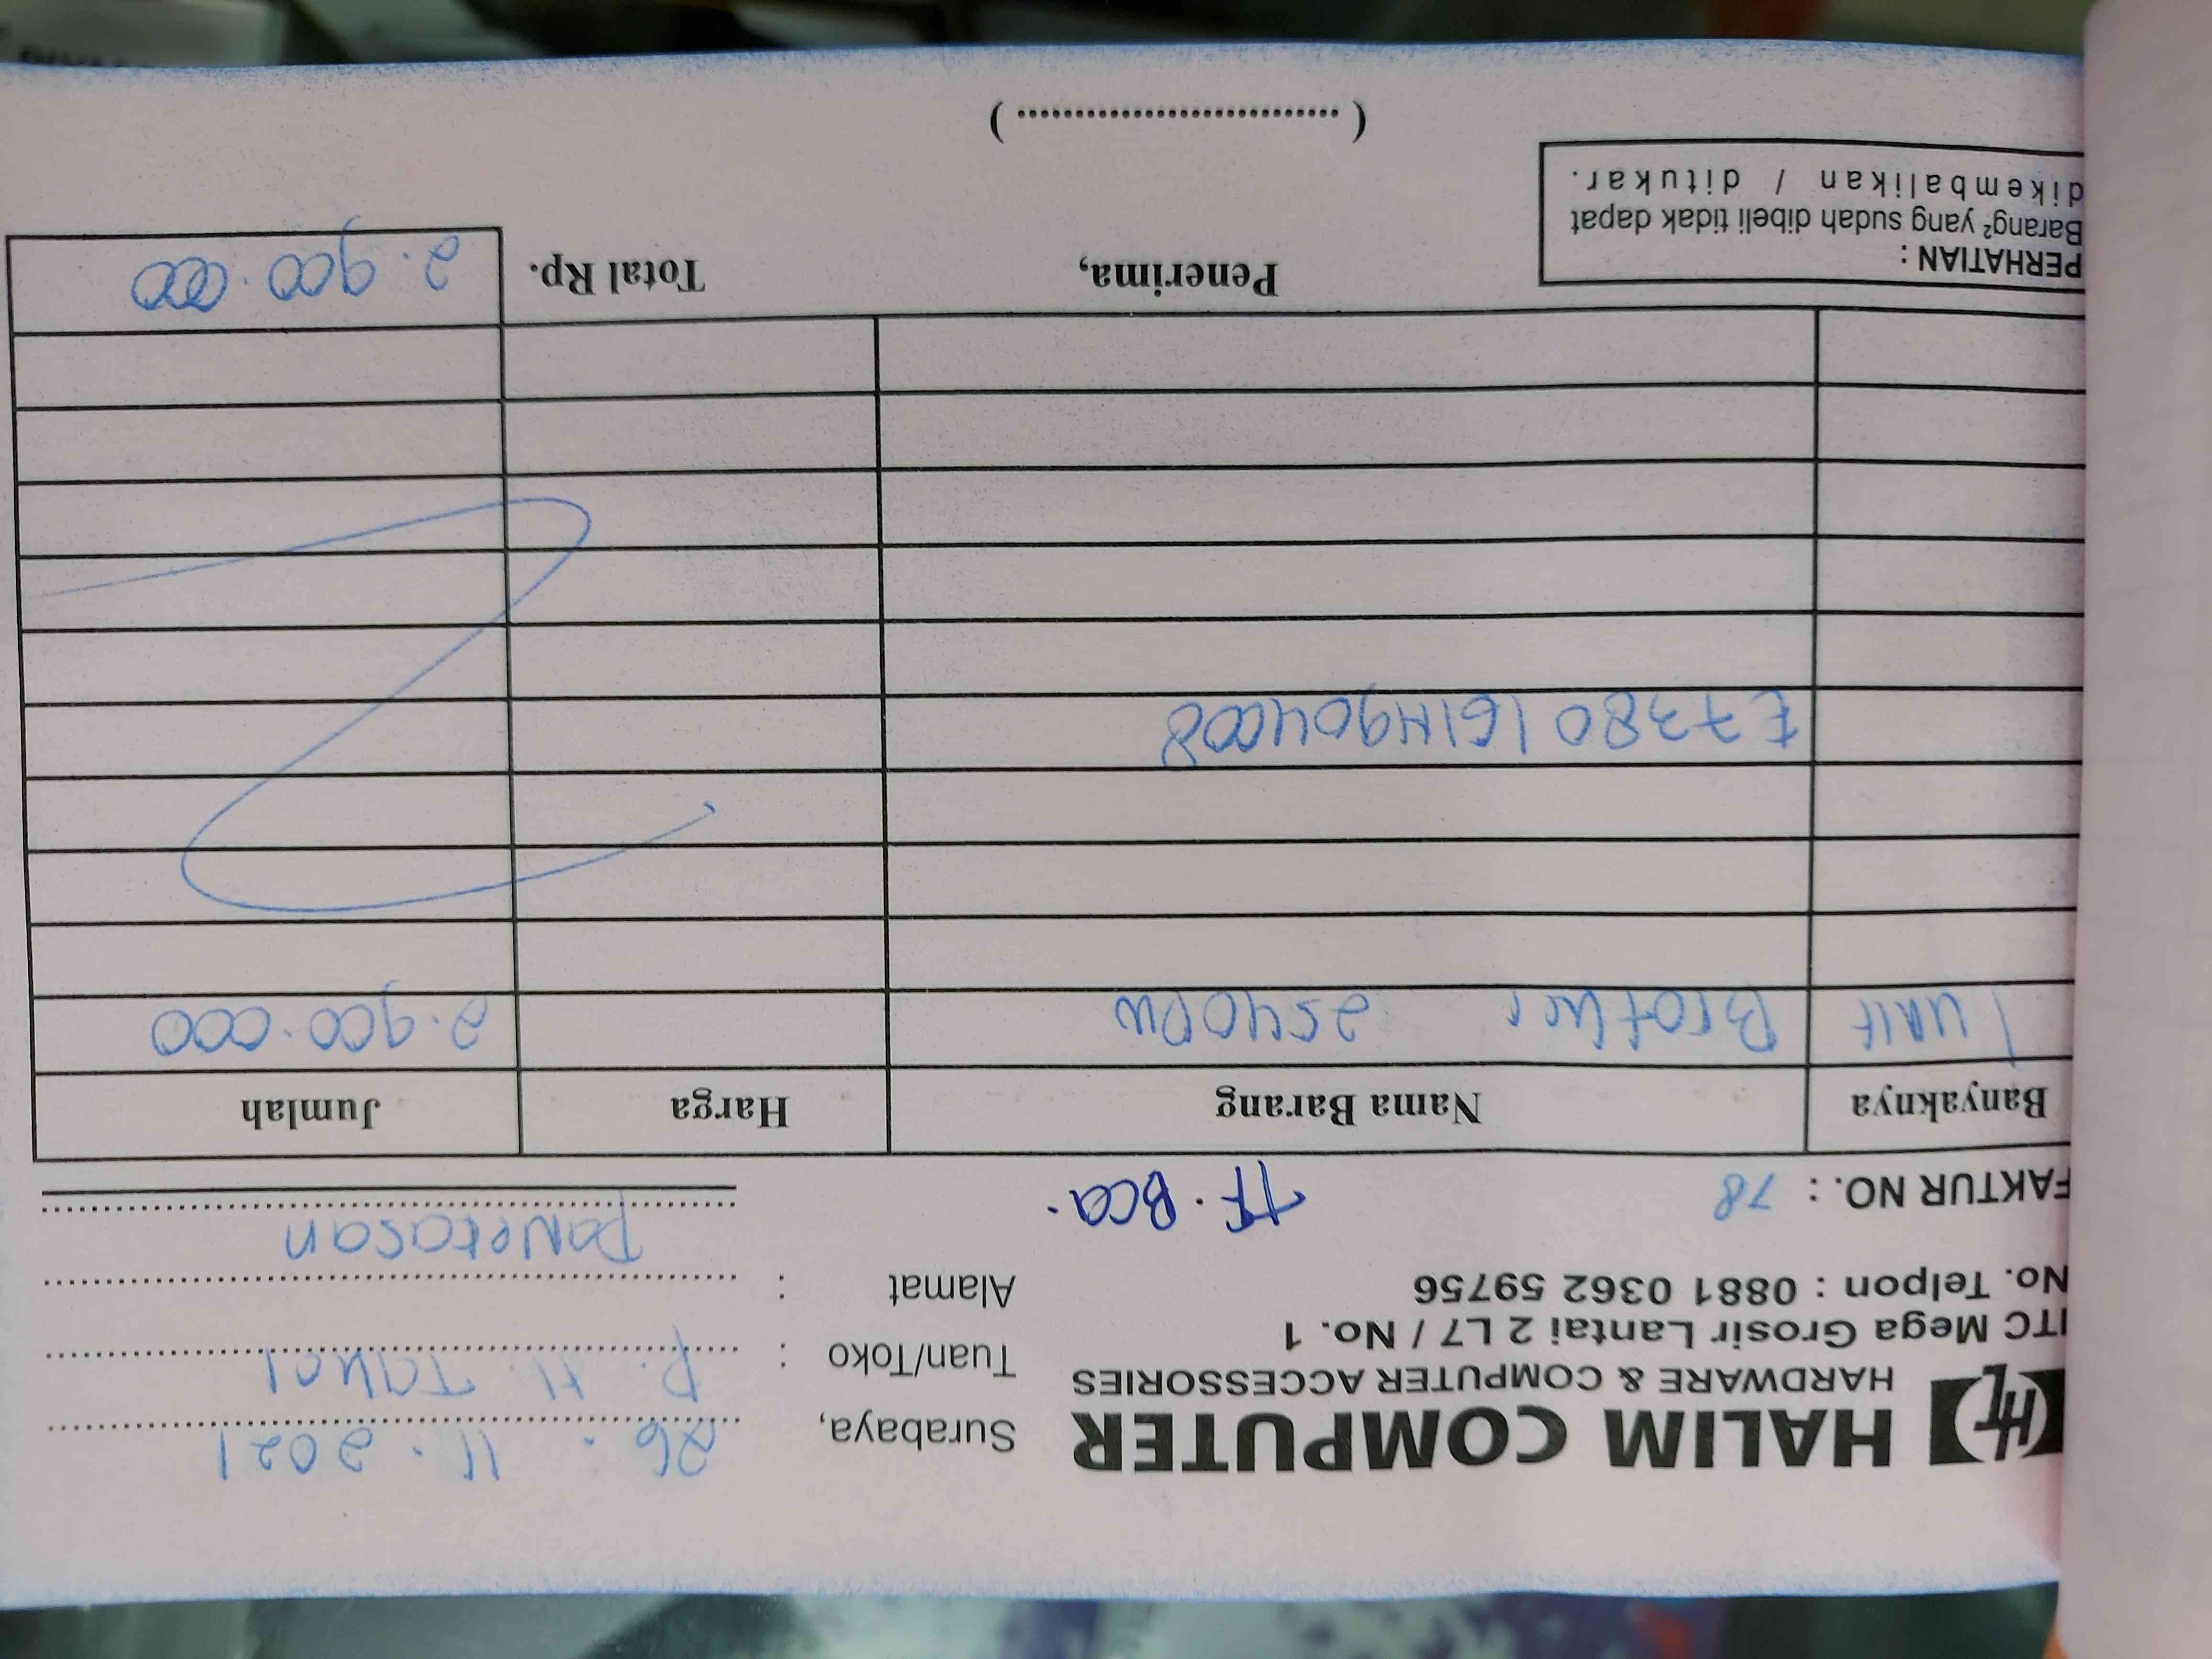 HALIM COMPUTER
HARDWARE & COMPUTER ACCESSORIES
ITC Mega Grosir Lantai 2 L7 / No. 1
No. Telpon : 0881 0362 59756
FAKTUR NO. : 78
TF. BCA.
Surabaya, 26 . 11 . 2021
Tuan/Toko : P. H.
Alamat :
Banyaknya Nama Barang Harga Jumlah
1 unit Brother 2540DW 2.900.000
E73801G1H904008
PERHATIAN :
Barang² yang sudah dibeli tidak dapat
dikembalikan / ditukar.
Penerima,
(..............................)
Total Rp. 2.900.000